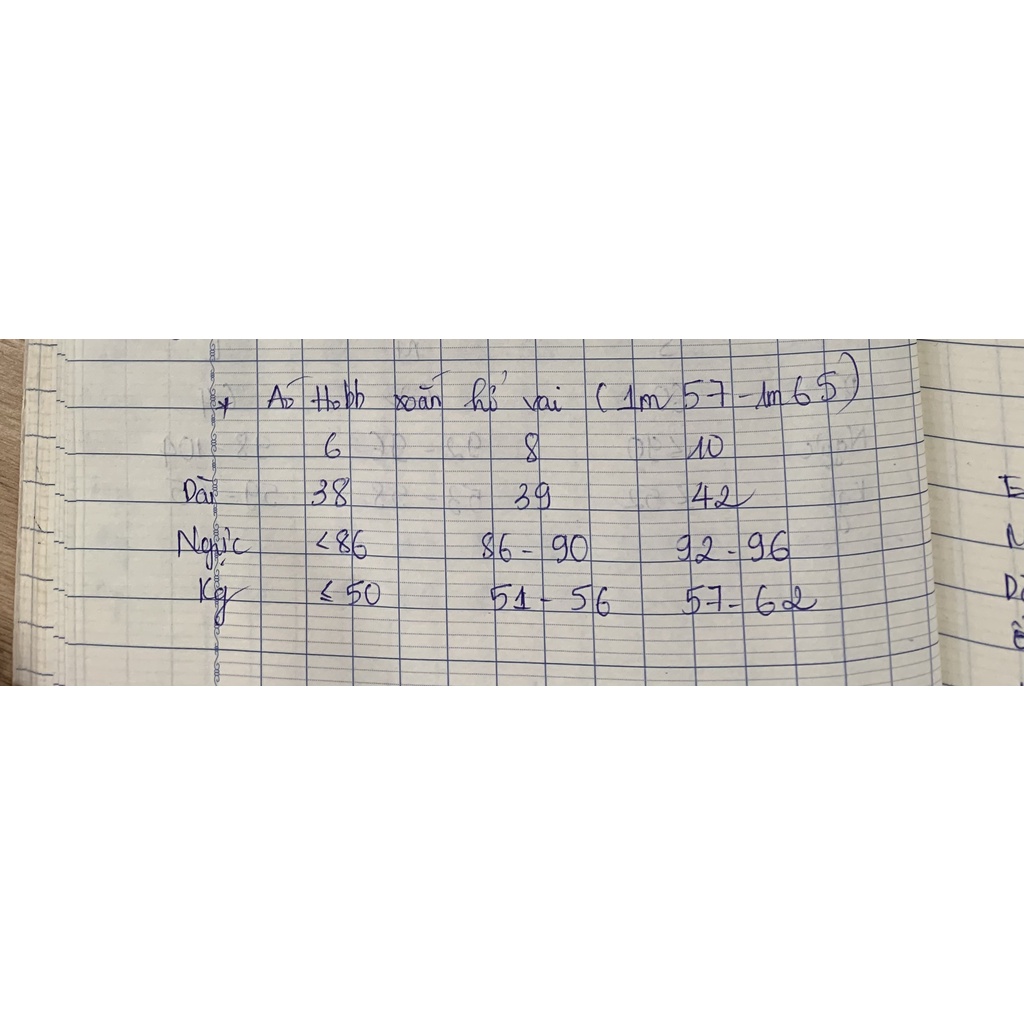 * Áo Hobb xoắn hở vai (1m57-1m65)
6 8 10
Dài 38 39 42
Ngực <86 86-90 92-96
Kg ≤50 51-56 57-62